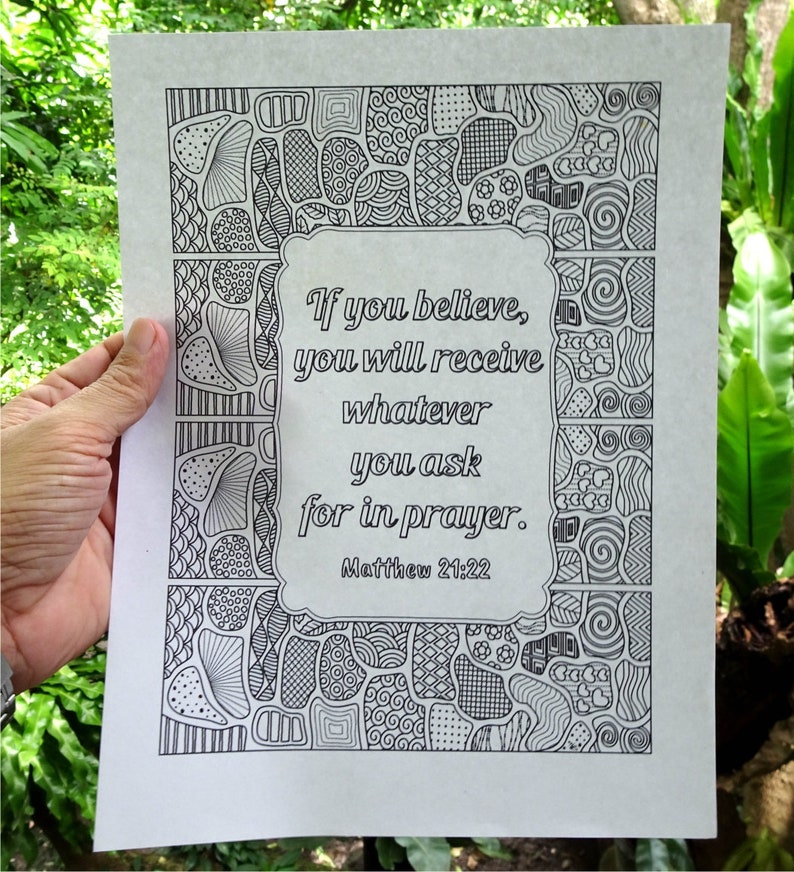 If you believe,
you will receive
whatever
you ask
for in prayer.
Matthew 21:22